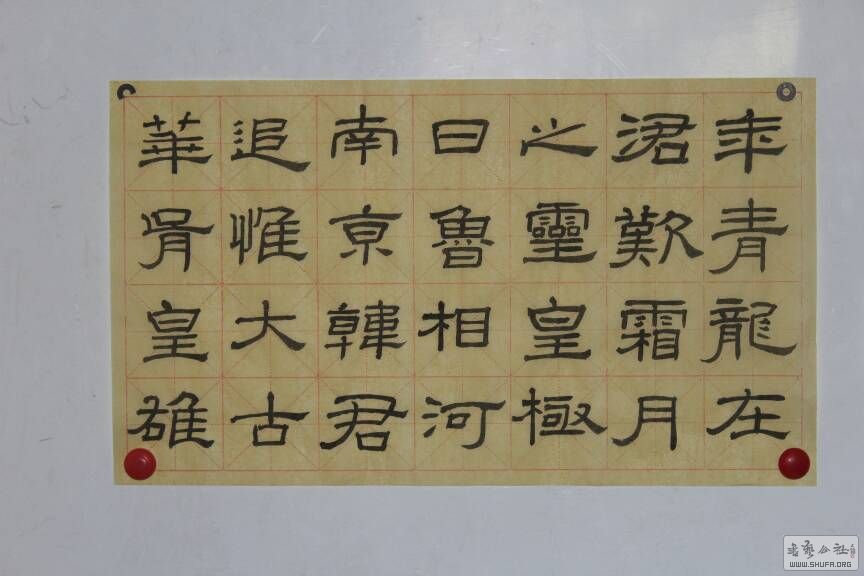 年青龍在
涒歎霜月
之靈皇極
日魯相河
南京韓君
追惟大古
華胥皇雄
书艺公社
WWW.SHUFA.ORG